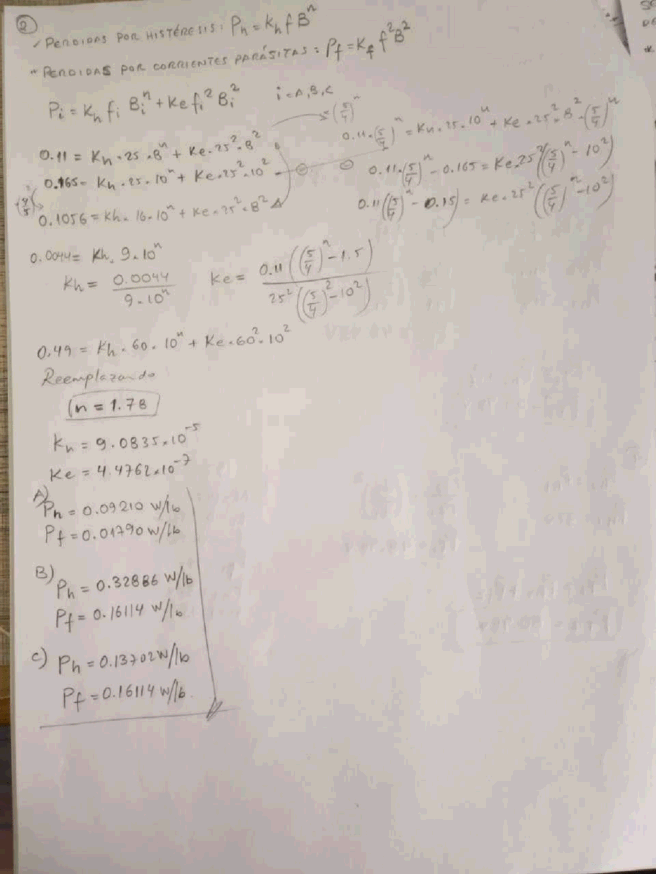 ②
✓ PERDIDAS POR HISTÉRESIS: Ph = Kh f B^n
" PERDIDAS POR CORRIENTES PARÁSITAS: Pf = Kf f² B²
Pi = Kh fi Bi^n + Ke fi² Bi² i = A, B, C
0.11 = Kh · 25 · 8^n + Ke · 25² · 8² (5/4)^n
0.11 · (5/4)^n = Kh · 25 · 10^n + Ke · 25² · 8² · (5/4)^n
0.165 = Kh · 25 · 10^n + Ke · 25² · 10²
0.11 · (5/4)^n - 0.165 = Ke 25² ((5/4)^n - 10²)
0.1056 = Kh · 16 · 10^n + Ke · 25² · 8²
0.11 (5/4)^n - 0.15) = Ke · 25² ((5/4)^n - 10²)
0.0044 = Kh · 9 · 10^n
Kh = 0.0044 / 9 · 10^n Ke = 0.11 ((5/4)^n - 1.5) / 25² ((5/4)² - 10²)
0.49 = Kh · 60 · 10^n + Ke · 60² · 10²
Reemplazando
n = 1.78
Kh = 9.0835 · 10^-5
Ke = 4.4762 · 10^-7
A)
Ph = 0.09210 w/lb
Pf = 0.01790 w/lb
B)
Ph = 0.32886 w/lb
Pf = 0.16114 w/lb
C) Ph = 0.13702 w/lb
Pf = 0.16114 w/lb